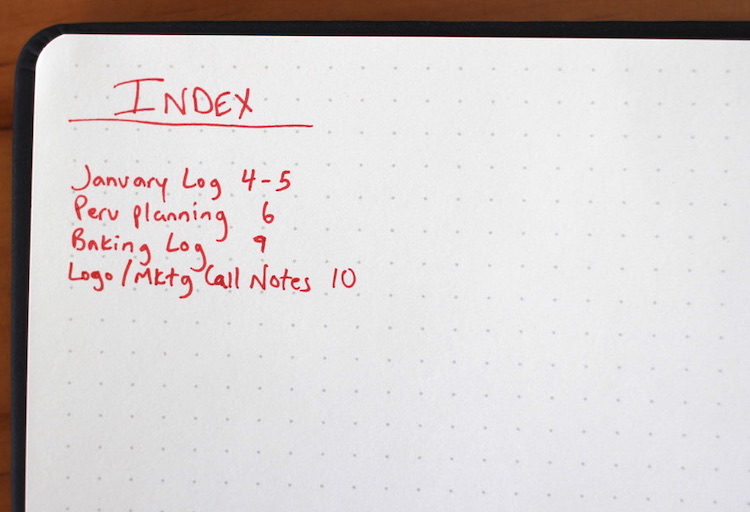 INDEX
January Log 4-5
Peru planning 6
Baking Log 9
Logo/Mktg Call Notes 10